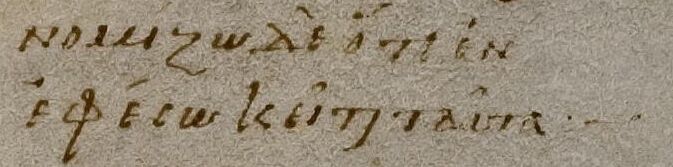 νομίζω δὲ ὅτι ἐν
ἐφέσω κεῖται ταῦτα